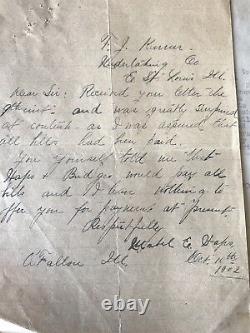 Undertaking Co
E St Louis Ill.
Dear Sir: Received your letter the
9th inst - and was greatly surprised
at contents - as I was assured that
all bills had been paid.
You yourself told me that
& Bridges would pay all
bills and I have nothing to
offer you for payment at present.
Respectfully
O'Fallon Ill
Oct. 11th
1902